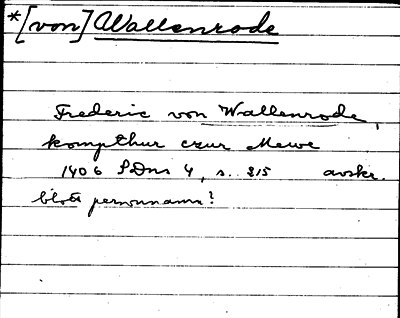 *[von] Wallenrode
Frederic von Wallenrode,
kompthur czur Mewe
1406 SDns 4, s. 215 avskr.
blott personnamn?